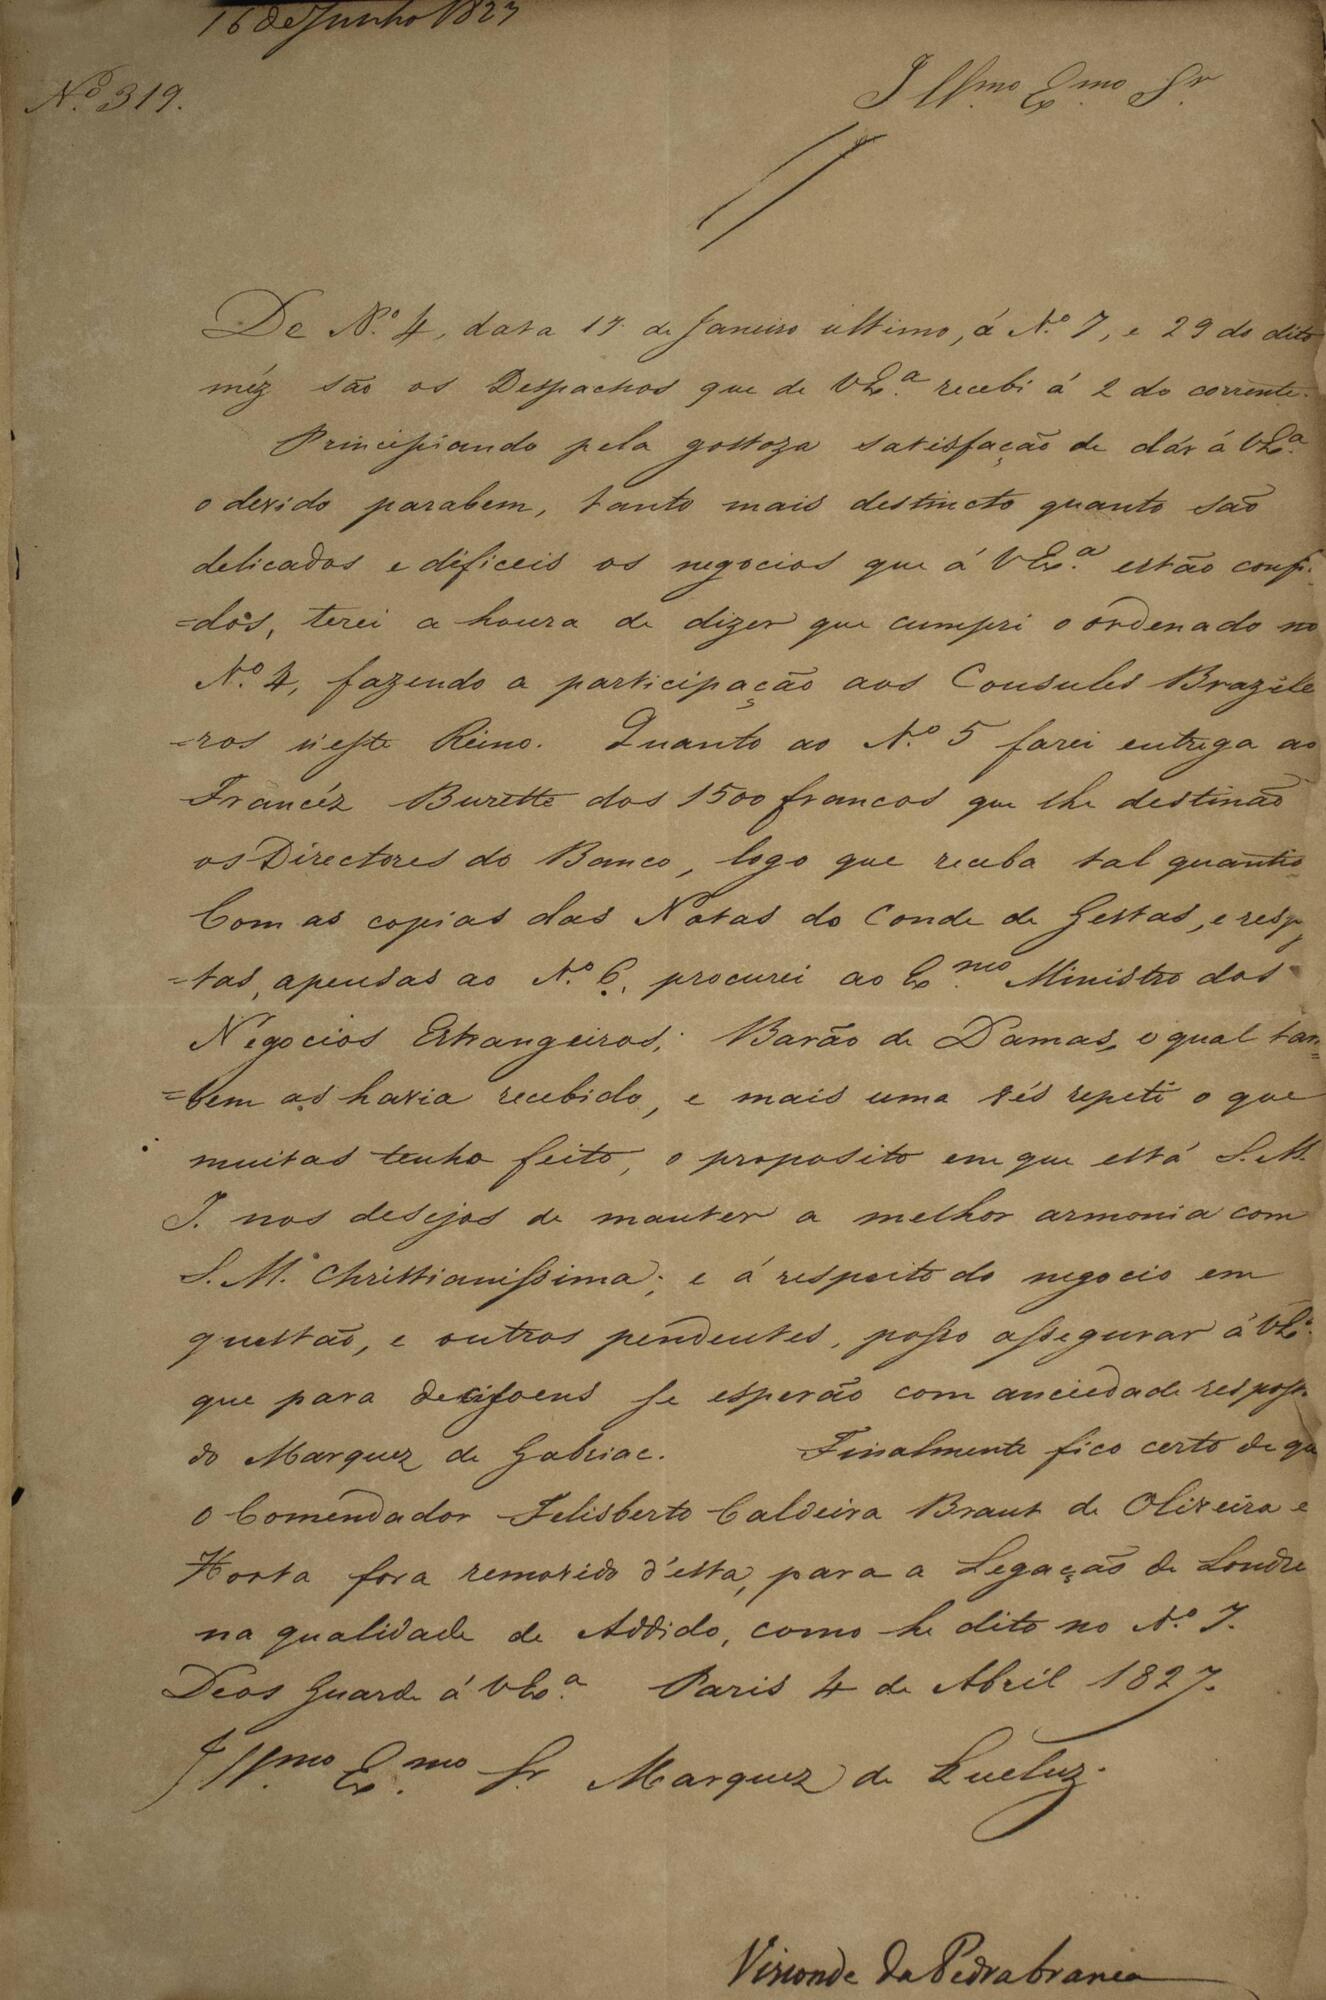 16 de Junho 1827
Nº 319.
Illmo Exmo Sr
De Nº 4, data 17 de Janeiro ultimo, á Nº 7, e 29 do dito
méz são os Despachos que de VExª recebi á 2 do corrente.
Principiando pela gostoza satisfação de dár á VExª
o devido parabem, tanto mais destincto quanto são
delicados e dificeis os negocios que á VExª estão confi-
=dos, terei a honra de dizer que cumpri o ordenado no
Nº 4, fazendo a participação aos Consules Brazile
=ros n'este Reino. Quanto ao Nº 5 farei entrega ao
Francéz Burette dos 1500 francos que lhe destinão
os Directores do Banco, logo que receba tal quantia
Com as copias das Notas do Conde de Gestas, e resp
=tas, apensas ao Nº 6, procurei ao Exmo Ministro dos
Negocios Estrangeiros, Barão de Damas, o qual tam
=bem as havia recebido, e mais uma vés repeti o que
muitas tenho feito, o proposito em que está S. M.
I. nos desejos de manter a melhor armonia com
S. M. Christianissima; e á respeito do negocio em
questão, e outros pendentes, posso assegurar á VExª
que para decisoens se esperão com anciedade respos
do Marquez de Gabriac. Finalmente fico certo de que
o Comendador Felisberto Caldeira Brant de Oliveira e
Horta fora removido d'esta, para a Legação de Londre
na qualidade de Addido, como he dito no Nº 7.
Deos Guarde á VExª Paris 4 de Abril 1827.
Illmo Exmo Sr Marquez de Queluz.
Visconde da Pedra branca